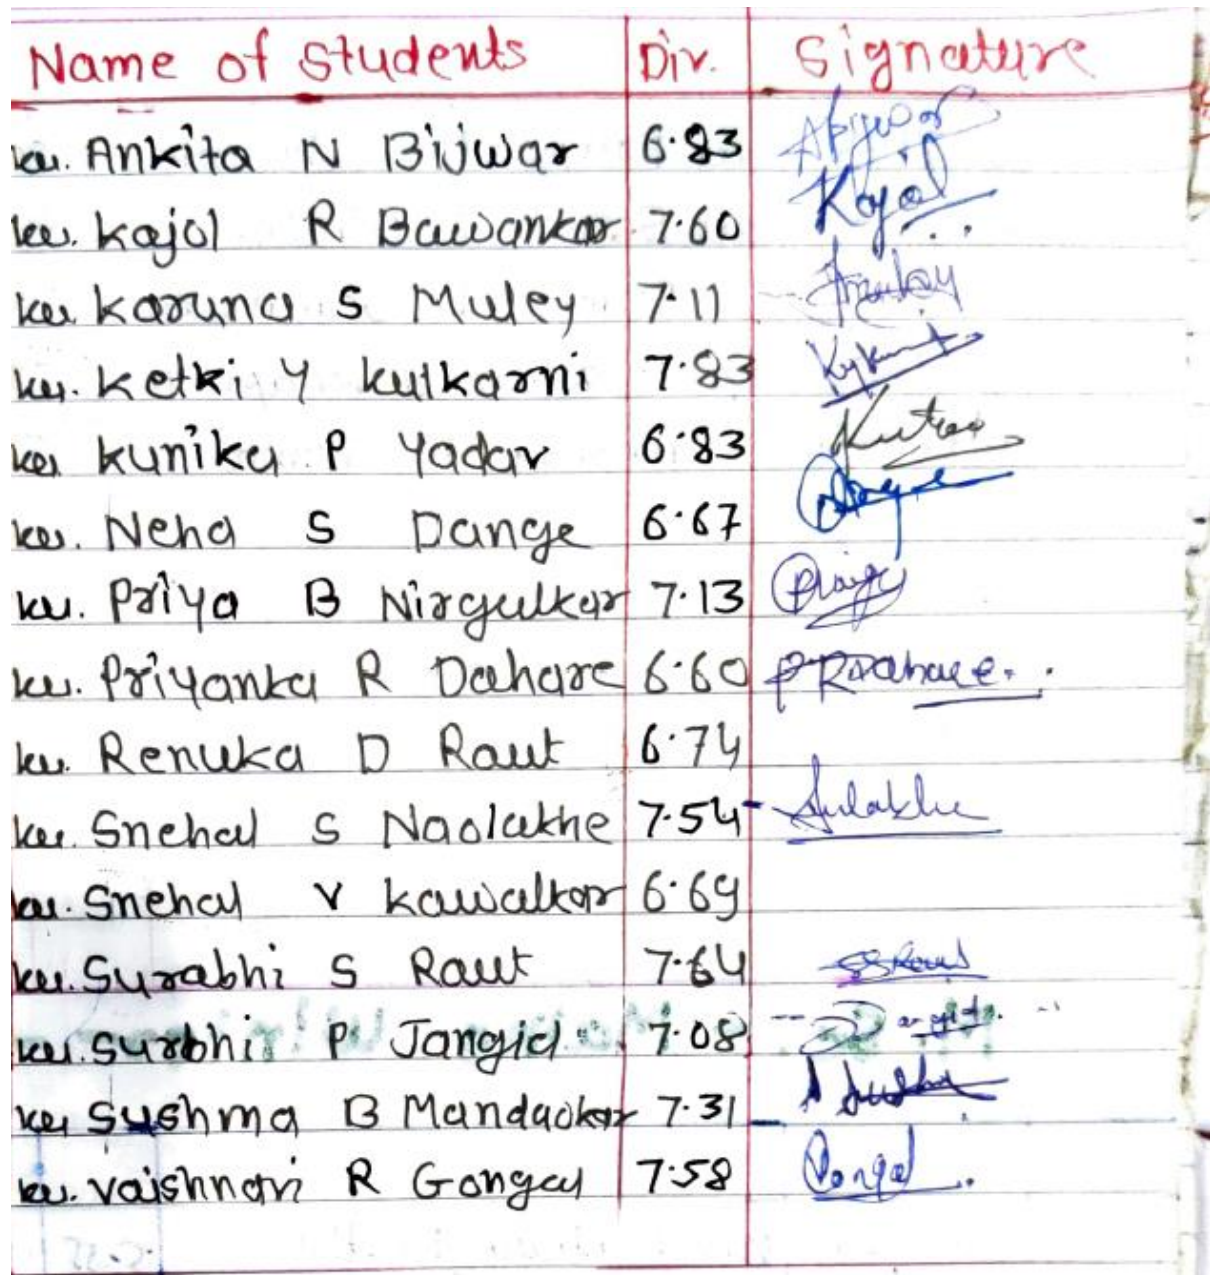 Name of Students Div. Signature
ku. Ankita N Bijwar 6.83
ku. Kajol R Bawankar 7.60 Kajol
ku. Karuna S Muley 7.11
ku. Ketki Y Kulkarni 7.83
ku. Kunika P Yadav 6.83
ku. Neha S Dange 6.67
ku. Priya B Nirgulkar 7.13
ku. Priyanka R Dahare 6.60 PRDahare.
ku. Renuka D Raut 6.74
ku. Snehal S Naolakhe 7.54
ku. Snehal V Kawalkar 6.69
ku. Surabhi S Raut 7.64 SSRaut
ku. Surbhi P Jangid 7.08 Jangid.
ku. Sushma B Mandaokar 7.31
ku. Vaishnavi R Gongal 7.58 Gongal